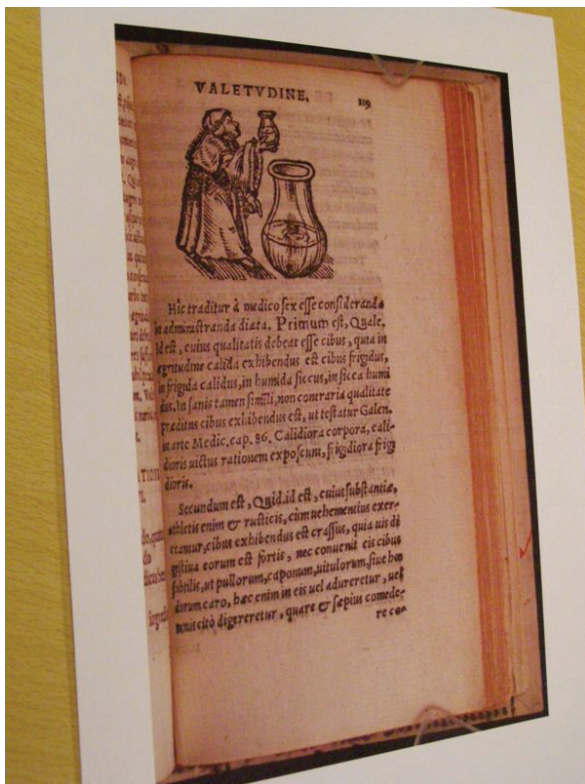 VALETVDINE, 119
Hîc traditur à medico sex esse consideranda
in administranda diæta. Primum est, Quale,
id est, cuius qualitatis debeat esse cibus, quia in
ægritudine calida exhibendus est cibus frigidus,
in frigida calidus, in humida siccus, in sicca humi
dus. In sanis tamen simili, non contraria qualitate
præditus cibus exhibendus est, ut testatur Galen.
in arte Medic. cap. 86. Calidiora corpora, cali-
dioris uictus rationem exposcunt, frigidiora frigi
dioris.
Secundum est, Quid. id est, cuius substantiæ,
athletis enim & rusticis, cùm uehementius exer-
ceantur, cibus exhibendus est crassus, quia uis di
gestiua eorum est fortis, nec conuenit eis cibus
subtilis, ut pullorum, caponum, uitulorum, siue hœ
dorum caro, hæc enim in eis uel adureretur, uel
nimis citò digereretur, quare & sæpius comede-
re co-